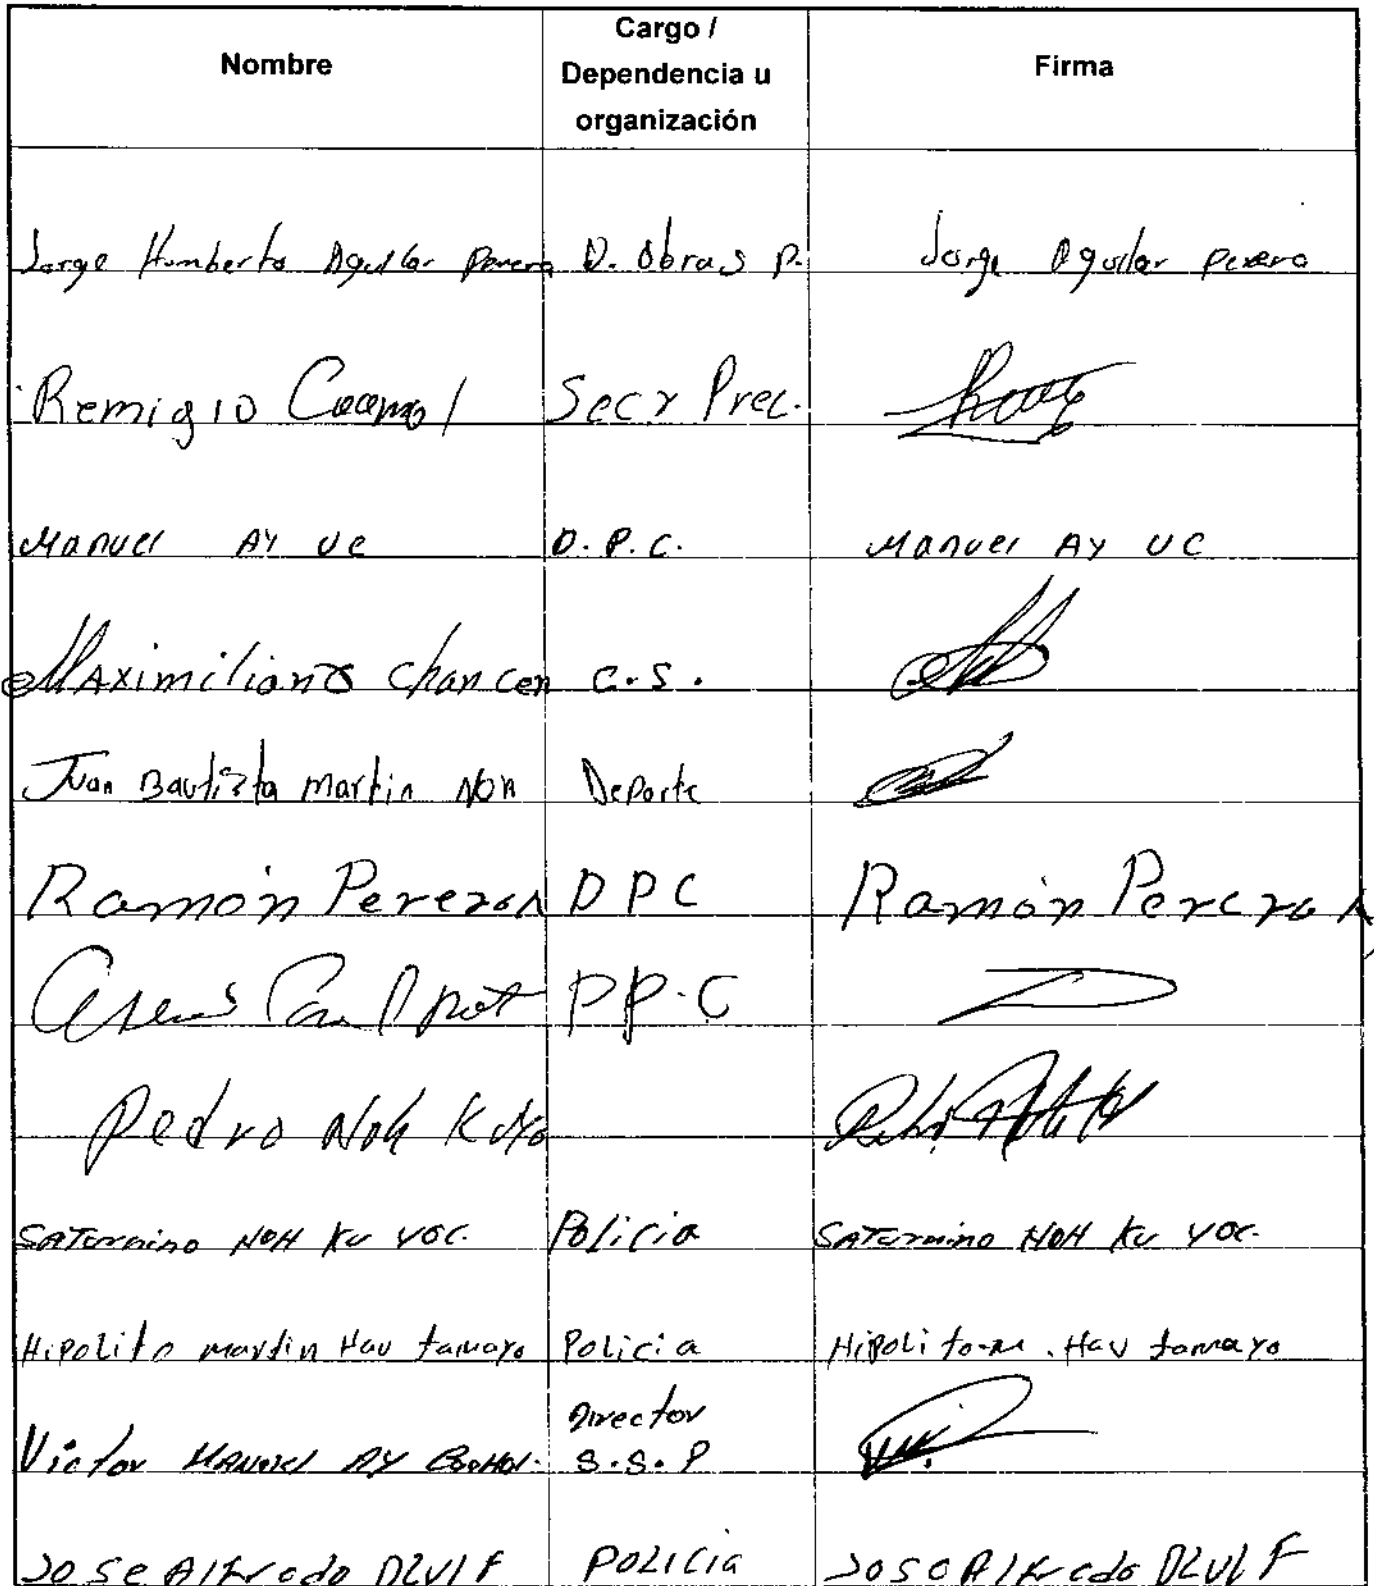 Nombre
Cargo /
Dependencia u
organización
Firma
Jorge Humberto Aguilar D. Obras P. Jorge Aguilar Perera
Remigio Secr Prec.
Manuel Ay Uc D.P.C. Manuel Ay UC
Maximiliano Chan Cen C.S.
Juan Bautista Martin Noh Deporte
Ramón Perera DPC Ramón Perera
Pedro Noh
Saturnino NOH Ku YOC. Policia Saturnino NOH Ku YOC.
Hipolito martin Hau tamayo Policia Hipolito M. Hau tamayo
Director
Victor Manuel AY S.S.P
Jose Alfredo DZUl F Policia Jose Alfredo DZUl F